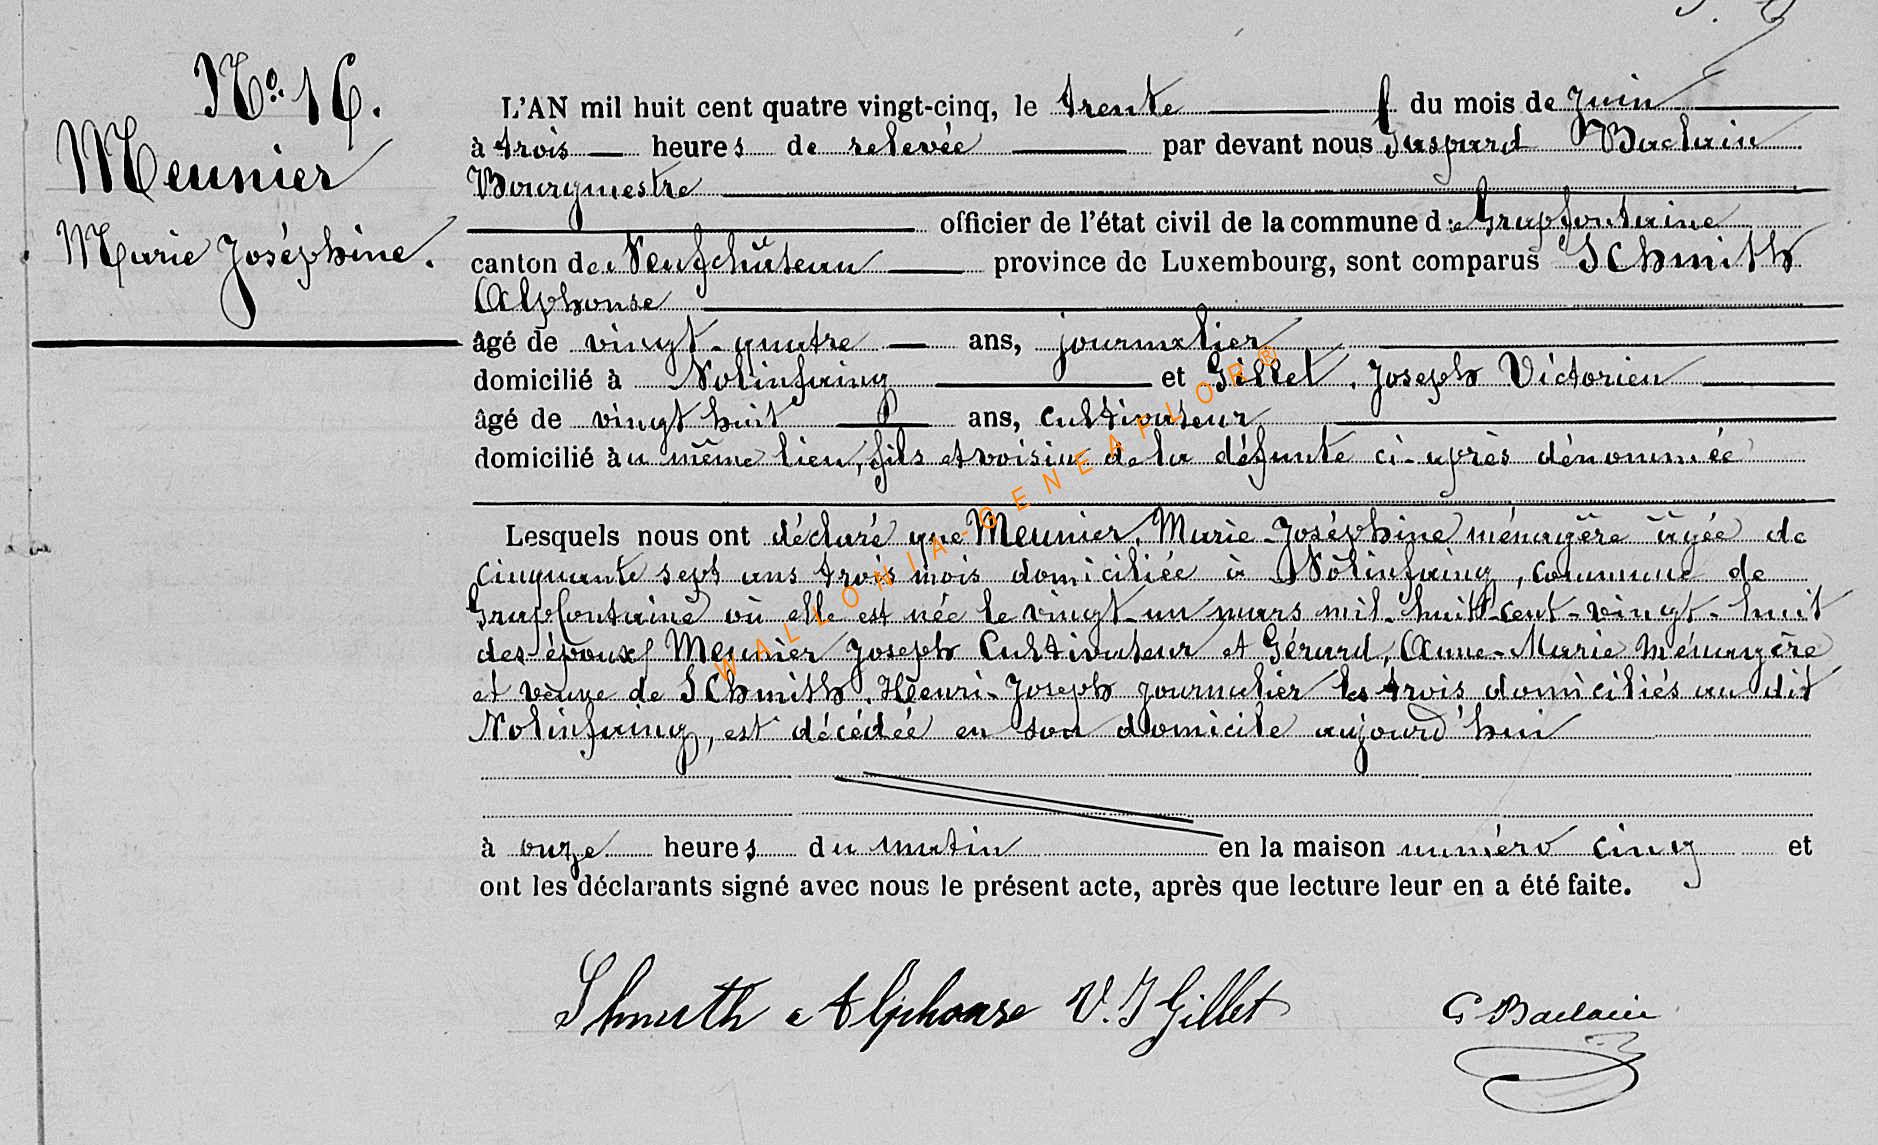 No. 16.
Meunier
Marie Joséphine.
L'AN mil huit cent quatre vingt-cinq, le trente du mois de Juin
à trois heures de relevée par devant nous Gaspard Baclain
Bourgmestre
officier de l'état civil de la commune de Grapfontaine
canton de Neufchâteau province de Luxembourg, sont comparus Schmith
Alphonse
âgé de vingt-quatre ans, journalier
domicilié à Nolinfaing et Gillet, Joseph Victorien
âgé de vingt huit ans, cultivateur
domicilié au même lieu, fils et voisin de la défunte ci-après dénommée
Lesquels nous ont déclaré que Meunier, Marie-Joséphine ménagère âgée de
cinquante sept ans trois mois domiciliée à Nolinfaing, commune de
Grapfontaine où elle est née le vingt-un mars mil-huit-cent-vingt-huit
des époux Meunier Joseph Cultivateur et Gérard, Anne-Marie Ménagère
et veuve de Schmith, Henri-Joseph journalier les trois domiciliés au dit
Nolinfaing, est décédée en son domicile aujourd'hui
à onze heures du matin en la maison numéro cinq et
ont les déclarants signé avec nous le présent acte, après que lecture leur en a été faite.
Alphonse V. J Gillet G Baclain
WALLONIA-GENEAPLOR®